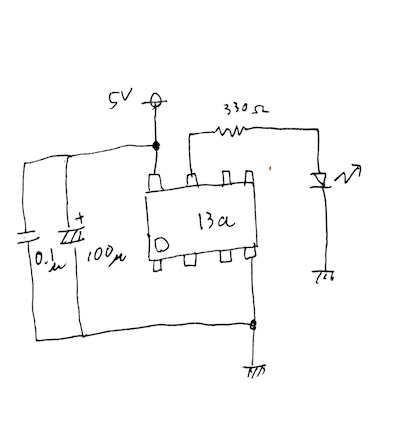 5V
330Ω
13a
+
0.1μ
100μ